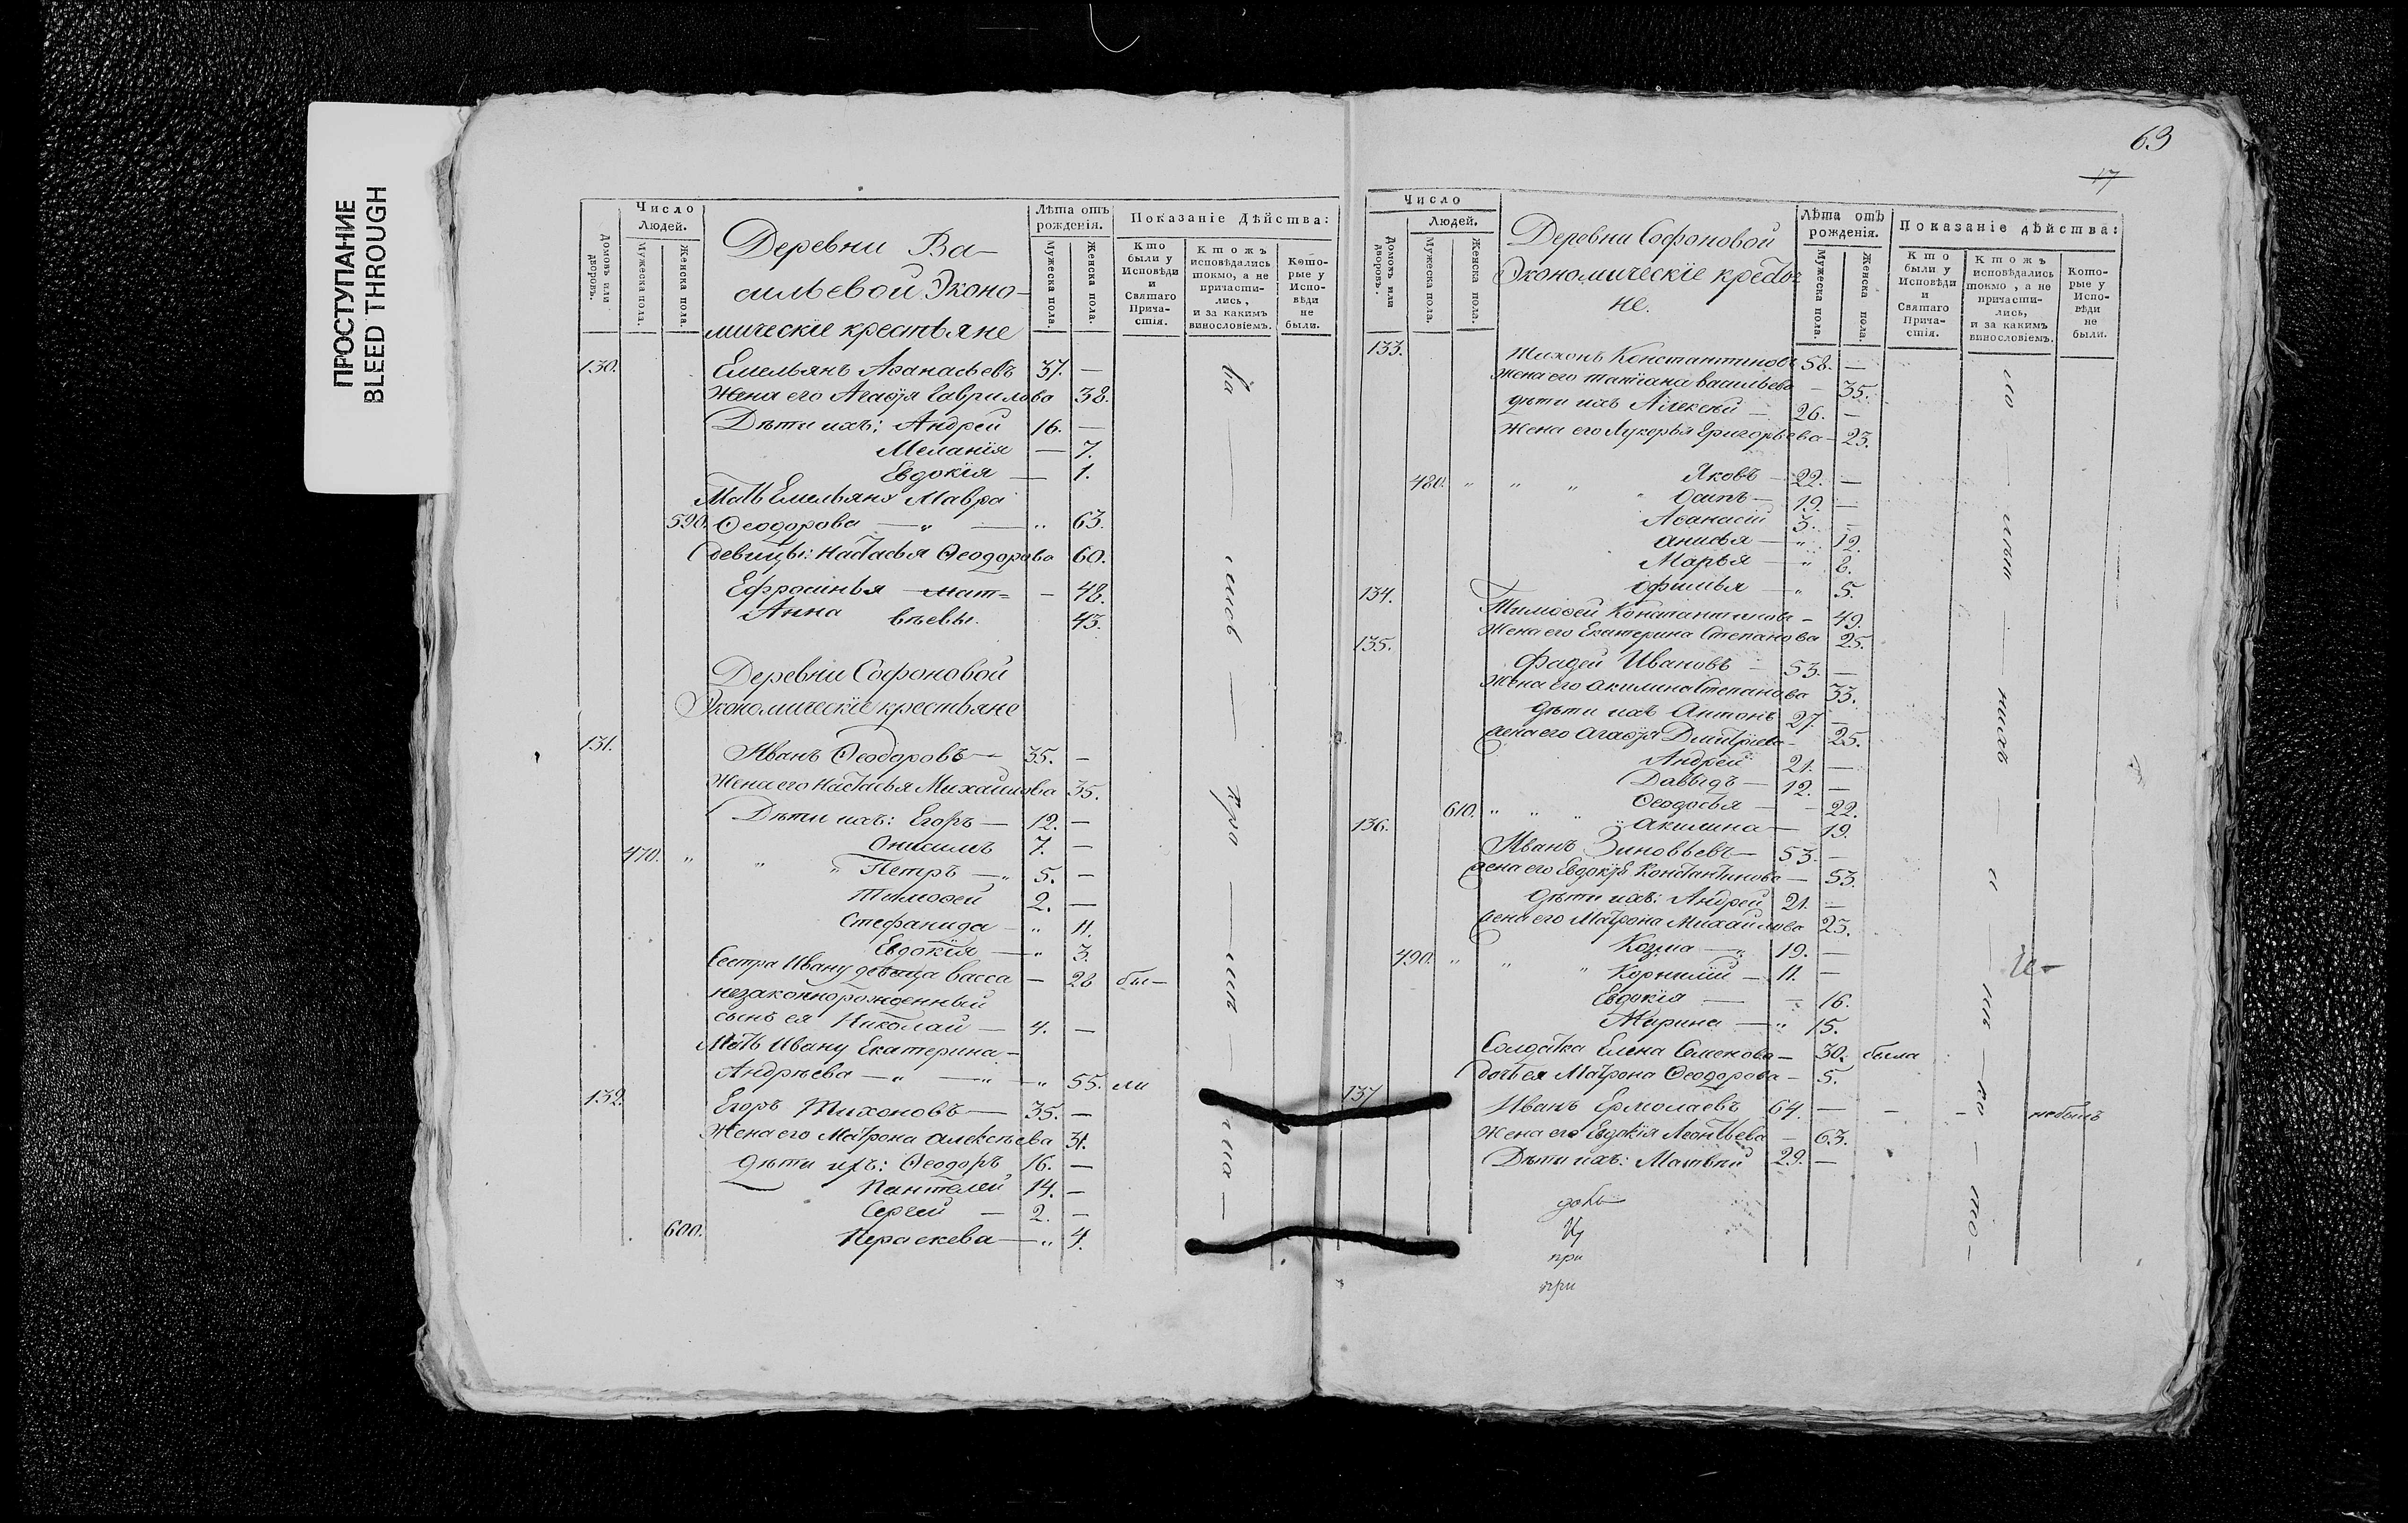 ПРОСТУПАНИЕ
BLEED THROUGH
63
17
Число
Людей.
Домовъ или дворовъ.
Мужеска пола.
Женска пола.
Деревни Ва-
сильевой Эконо-
мическіе крестьяне
Лѣта отъ рожденія.
Мужеска пола.
Женска пола.
Показаніе Дѣйства:
Кто были у Исповѣди и Святаго Прича-стія.
Ктожъ исповѣдались токмо, а не причасти-лись, и за какимъ винословіемъ.
Кото-рые у Испо-вѣди не были.
130. Емельянъ Аѳанасьевъ 37. —
Жена его Агаѳія Гаврилова 38.
Дѣти ихъ: Андрей 16. —
Меланія — 7.
Евдокія — 1.
Мать Емельяну Мавра
590. Ѳеодорова — „ — „ 63.
девицы: Настасья Ѳеодорова 60.
Ефросинья мат= — 48.
Анна вѣевы. 43.
Деревни Софоновой
Экономическіе крестьяне
131. Иванъ Ѳеодоровъ — 35. —
Жена его Настасья Михайлова 35.
Дѣти ихъ: Егоръ — 12. —
Онисимъ 7. —
470. „ „ „ Петръ — „ 5. —
Тимоѳей 2. —
Стефанида — „ 11.
Евдокія — „ 3.
Сестра Ивану девица Васса — 28 бы-
незаконнорожденный
сынъ ея Николай — 4. —
Мать Ивану Екатерина —
Андрѣева — „ — „ — „ 55. ли
132. Егоръ Тихоновъ — 35. —
Жена его Матрона Алексѣева 31.
дѣти ихъ: Ѳеодоръ 16. —
Пантелей 14. —
Сергей — 2. —
600. Параскева — „ 4.
Число
Людей.
Домовъ или дворовъ.
Мужеска пола.
Женска пола.
Деревни Софоновой
Экономическіе крестья-
не.
Лѣта отъ рожденія.
Мужеска пола.
Женска пола.
Показаніе дѣйства:
Кто были у Исповѣди и Святаго Прича-стія.
Ктожъ исповѣдались токмо, а не причасти-лись, и за какимъ винословіемъ.
Кото-рые у Испо-вѣди не были.
133. Тихонъ Константиновъ 58. —
Жена его Татіана Васильева — 35.
дѣти ихъ Алексѣй — 26. —
Жена его Лукерья Григорьева — 23.
480. „ „ „ Яковъ — 22. —
„ Осипъ — 19. —
Аѳанасій 3. —
Анисья — „ 12.
Марья — „ 8.
Офимья — „ 5.
134. Тимоѳей Константиновъ — 49.
Жена его Екатерина Степанова 25.
135. Фадей Ивановъ — 53. —
Жена его Акилина Степанова 33.
дѣти ихъ Антонъ 27. —
жена его Агаѳія Дмитріева — 25.
Андрей 21. —
Давыдъ — 12. —
610. „ „ „ Ѳеодосья — 22.
„ Акилина — 19.
136. Иванъ Зиновьевъ — 53. —
жена его Евдокія Константинова — 53.
дѣти ихъ: Андрей 21. —
жена его Матрона Михайлова 23.
490. „ „ „ Козма — „ 19. —
Корнилій — 11. —
Евдокія — — 16.
Марина — „ 15.
Солдатка Елена Семенова — 30. была
дочь ея Матрона Ѳеодорова — 5.
137 Иванъ Ермолаевъ 64. — — не былъ
Жена его Евдокія Леонтьева — 63.
Дѣти ихъ: Матвей 29. —
при
при